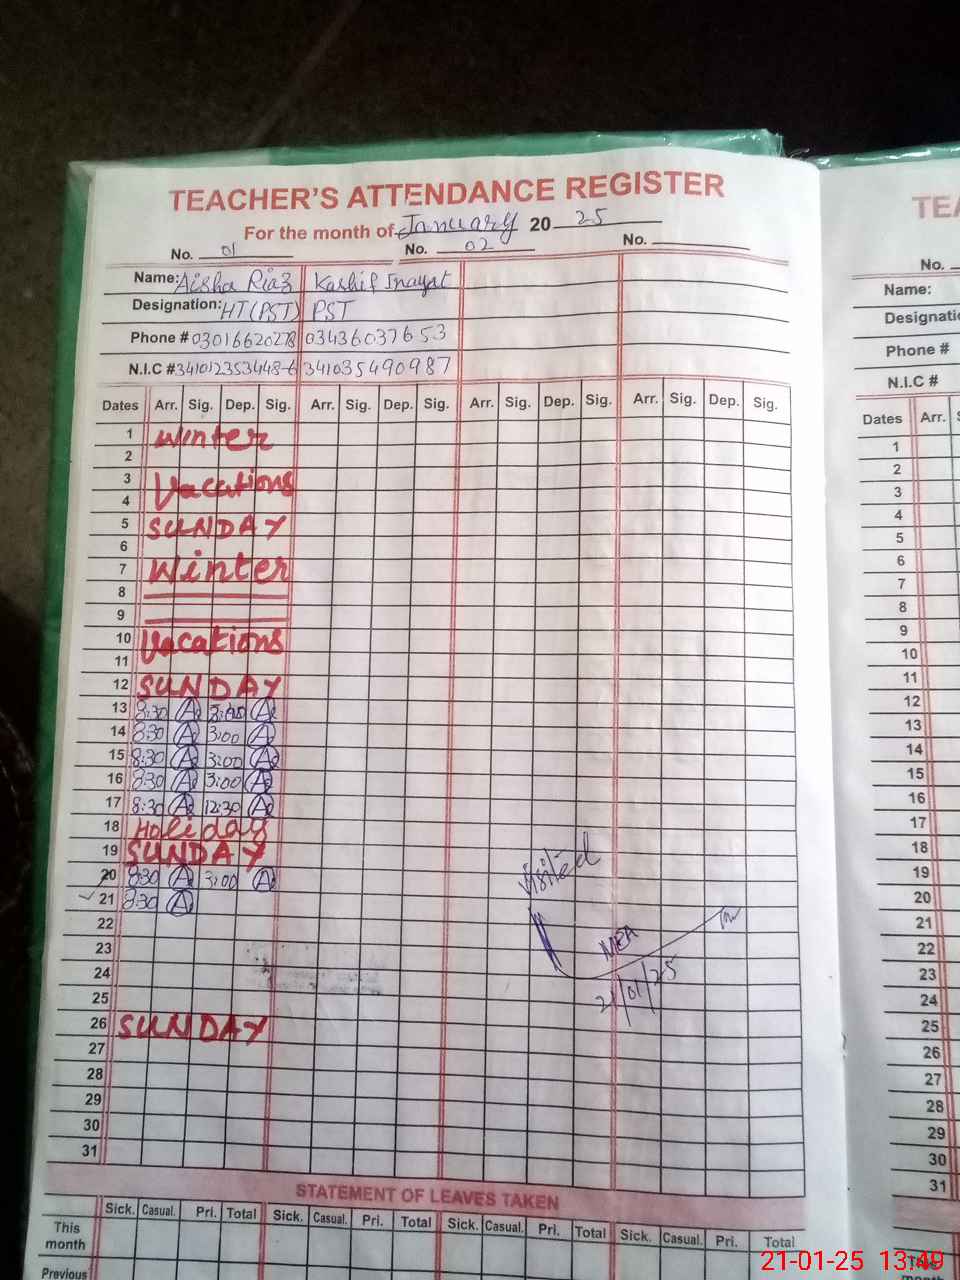 TEACHER'S ATTENDANCE REGISTER
For the month of January 20 25
No. 01 No. 02 No.
Name: Aisha Riaz Kashif Inayat
Designation: HT(PST) PST
Phone # 03016620278 03436037653
N.I.C # 341012353448-6 341035490987
Dates Arr. Sig. Dep. Sig. Arr. Sig. Dep. Sig. Arr. Sig. Dep. Sig. Arr. Sig. Dep. Sig.
1 Winter
2
3 Vacations
4
5 SUNDAY
6
7 Winter
8
9
10 Vacations
11
12 SUNDAY
13 8:30 3:00
14 8:30 3:00
15 8:30 3:00
16 8:30 3:00
17 8:30 12:30
18 Holiday
19 SUNDAY
20 8:30 3:00
21 8:30
22
23
24
25
26 SUNDAY
27
28
29
30
31
visited
MEA
21/01/25
STATEMENT OF LEAVES TAKEN
Sick. Casual. Pri. Total Sick. Casual. Pri. Total Sick. Casual. Pri. Total Sick. Casual. Pri. Total
This month
Previous
TEA
No.
Name:
Designatio
Phone #
N.I.C #
Dates Arr. S
1
2
3
4
5
6
7
8
9
10
11
12
13
14
15
16
17
18
19
20
21
22
23
24
25
26
27
28
29
30
31
This
month
21-01-25 13:49